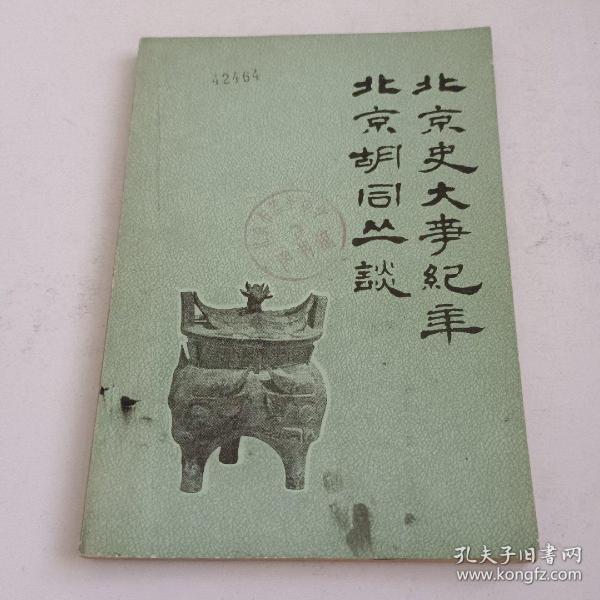 42464
北京史大事紀年
北京胡同丛談
孔夫子旧書网
www.kongfz.com